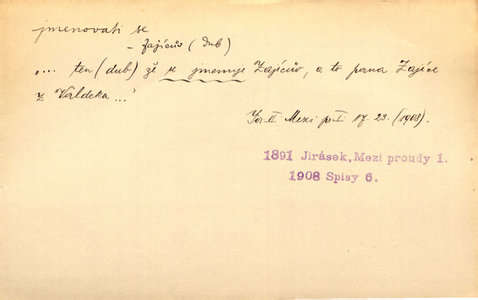 jmenovati se
– Zajícův (dub)
„... ten (dub) zč se jmenuje Zajícův, a to pana Zajíce
z Valdeka ...‟
Jir. II Mezi pr. I. 17. 23. (1908).
1891 Jirásek, Mezi proudy 1.
1908 Spisy 6.